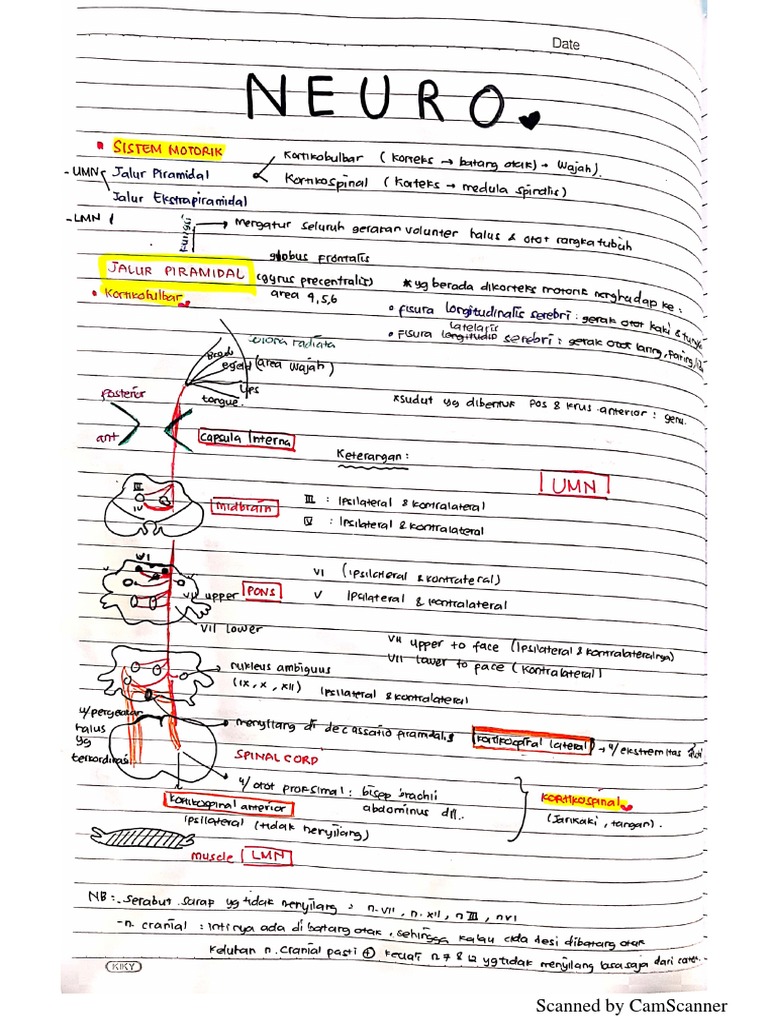 Date
NEURO
• SISTEM MOTORIK
Kortikobulbar (Korteks → batang otak) → Wajah).
-UMN
Jalur Piramidal
Kortikospinal (Korteks → medula spinalis)
Jalur Ekstrapiramidal
-LMN
fungsi
→ mengatur seluruh gerakan volunter halus & otot rangka tubuh
globus frontalis
JALUR PIRAMIDAL
(gyrus precentralis)
* yg berada dikorteks motorik menghadap ke :
• Kortikobulbar
area 4,5,6
• fisura longitudinalis serebri : gerak otot kaki &
• Fisura longitudin serebri : gerak otot laring, faring,
lateralis
corona radiata
(area wajah)
Posterior
lips
tongue.
*sudut yg dibentuk pos & krus anterior : genu.
ant
capsula Interna
Keterangan :
UMN
III
IV
midbrain
III : Ipsilateral & kontralateral
IV : Ipsilateral & kontralateral
VI
VI (ipsilateral & kontrateral)
VII upper
PONS
V Ipsilateral & kontralateral
VII lower
VII upper to face (Ipsilateral & kontralateralnya)
→ nukleus ambiguus
VII lower to face (kontralateral)
(IX, X, XII) Ipsilateral & kontralateral
u/pergerakan
halus
yg
terkordinasi
menyilang di decassatio piramidalis
kortikospinal lateral
→ u/ ekstremitas
SPINAL CORD
u/ otot proksimal : bisep brachii
abdominus dll..
kortikospinal anterior
Kortikospinal
ipsilateral (tidak menyilang)
(Jari kaki, tangan).
muscle
LMN
NB :- Serabut saraf yg tidak menyilang : n.VII, n.XII, n III, n VI
-n. cranial : intinya ada di batang otak, sehingga kalau ada lesi dibatang otak
kelutan n. Cranial pasti ⊕ kecuali n 7 & 12 yg tidak menyilang bisa saja dari
KIKY
Scanned by CamScanner